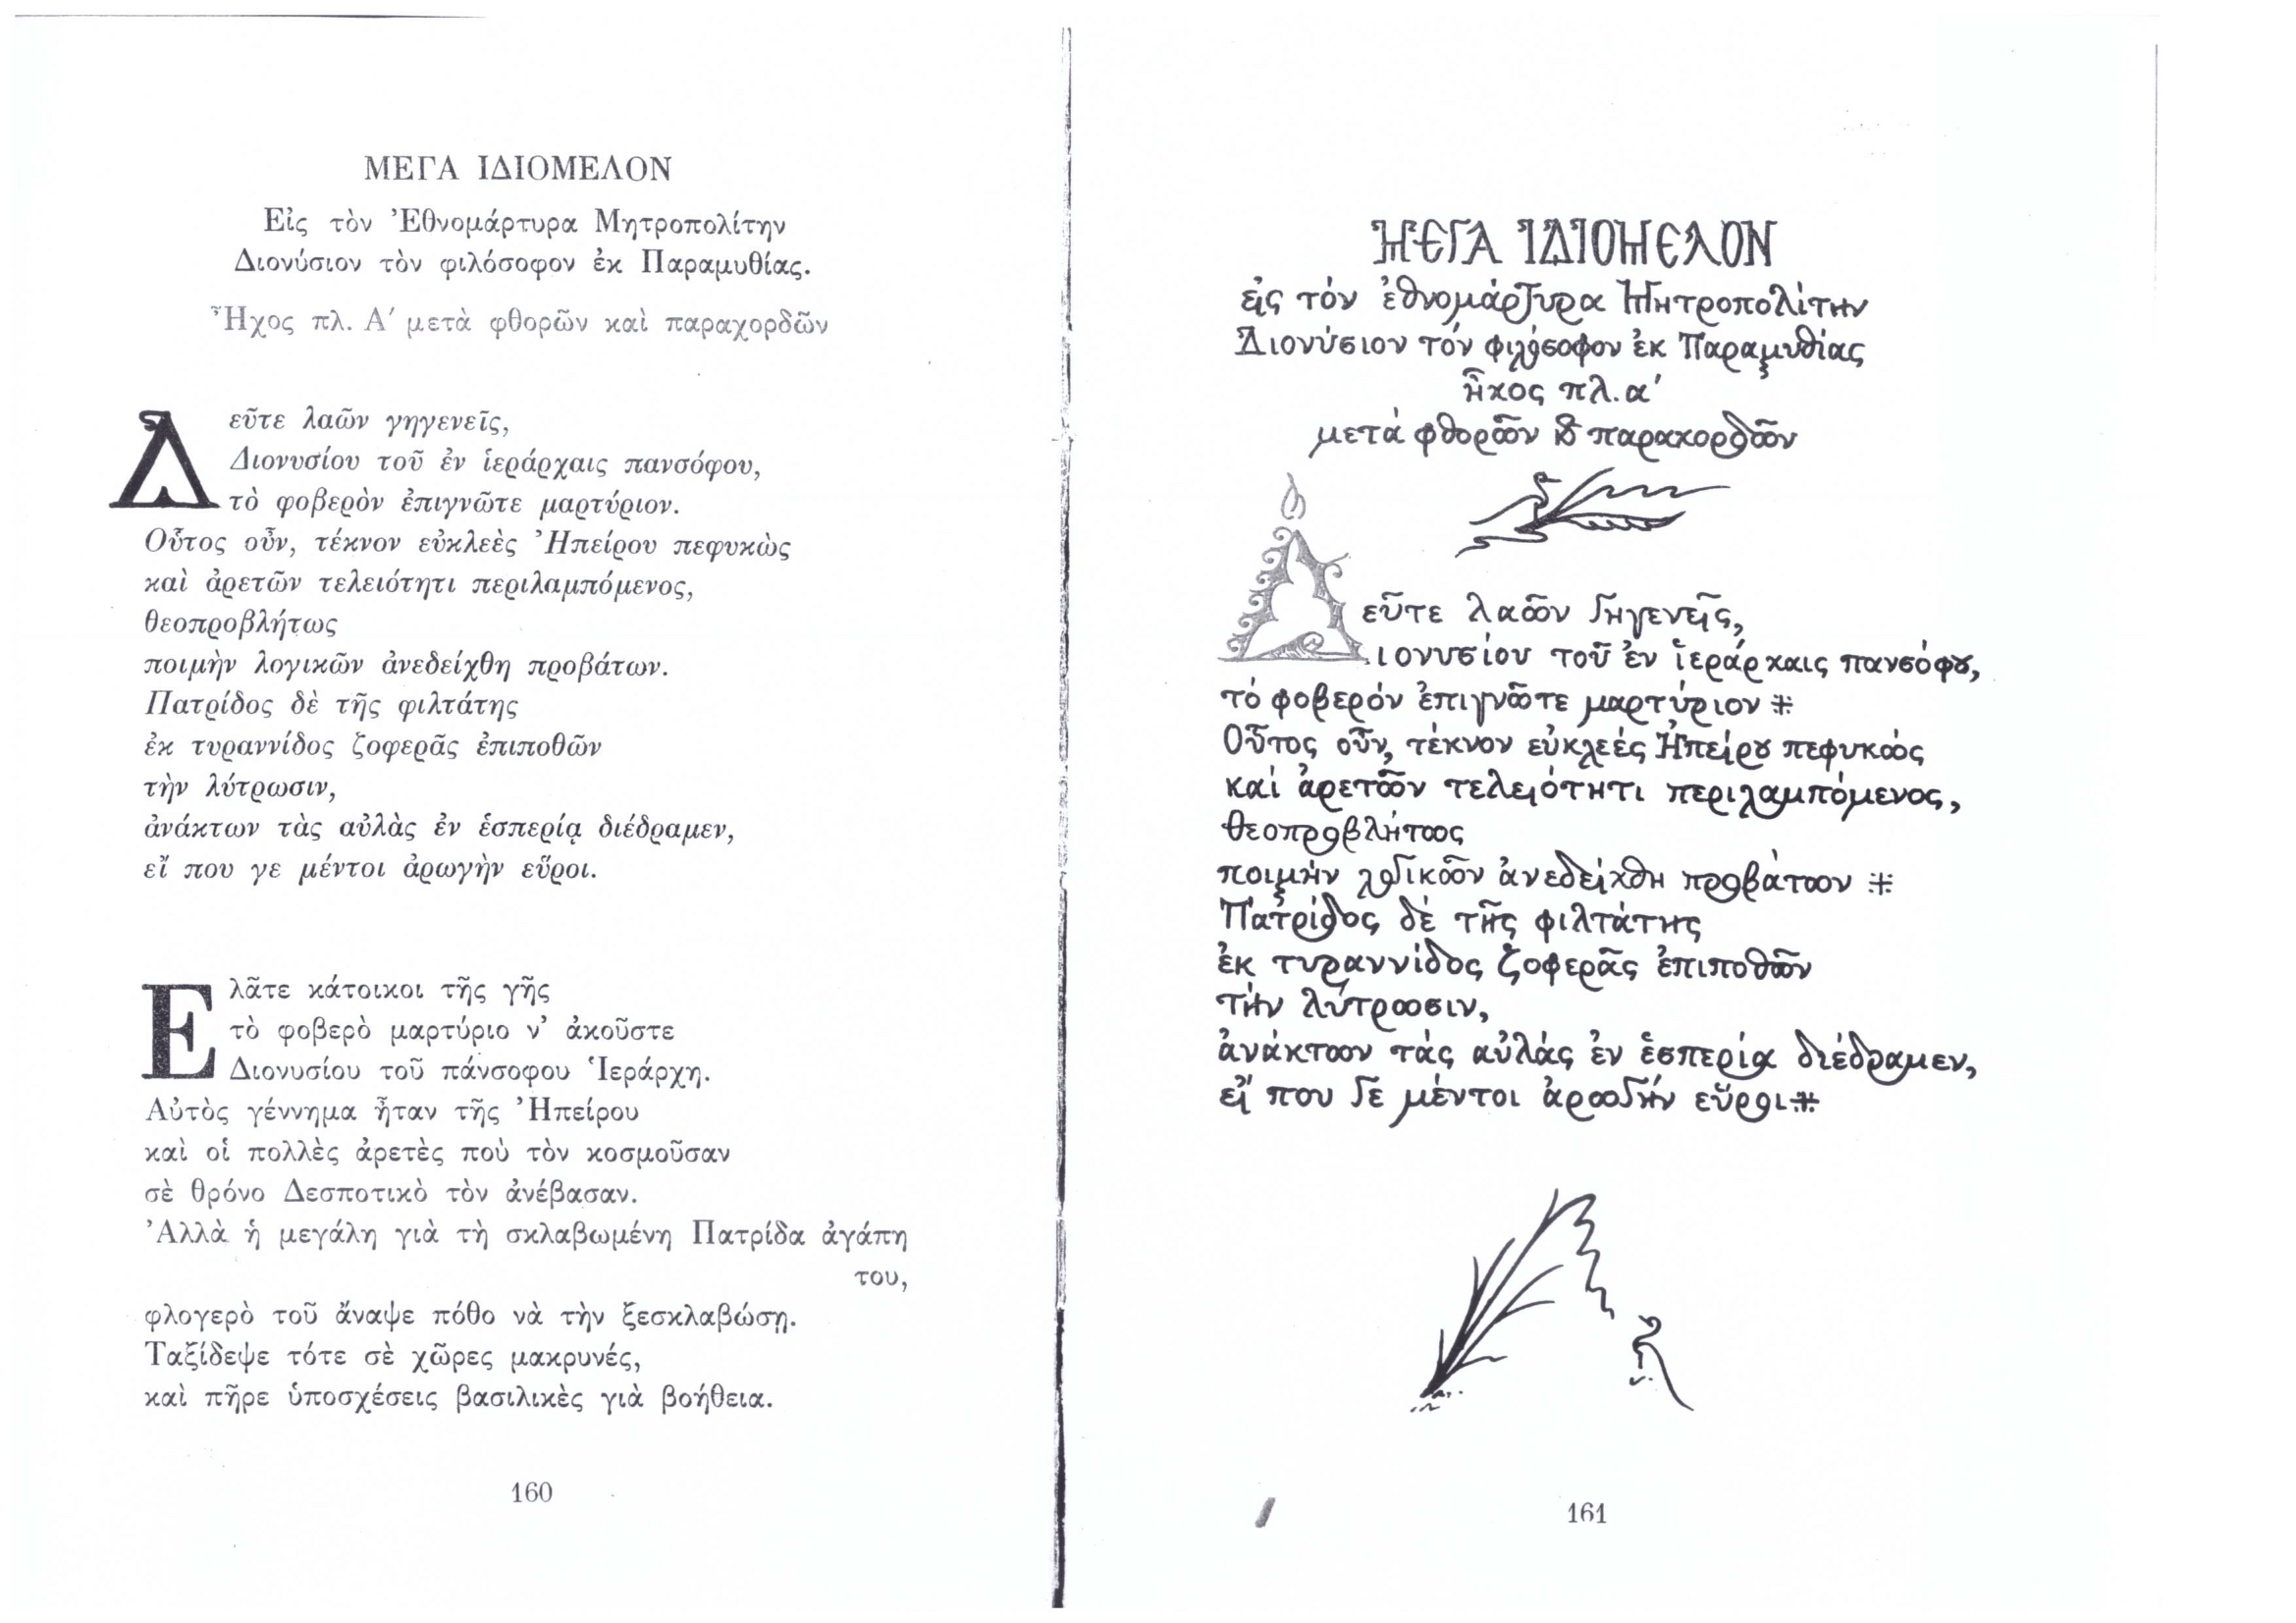 ΜΕΓΑ ΙΔΙΟΜΕΛΟΝ
Εἰς τὸν Ἐθνομάρτυρα Μητροπολίτην
Διονύσιον τὸν φιλόσοφον ἐκ Παραμυθίας.
Ἦχος πλ. Α′ μετὰ φθορῶν καὶ παραχορδῶν
Δεῦτε λαῶν γηγενεῖς,
Διονυσίου τοῦ ἐν ἱεράρχαις πανσόφου,
τὸ φοβερὸν ἐπιγνῶτε μαρτύριον.
Οὗτος οὖν, τέκνον εὐκλεὲς Ἠπείρου πεφυκὼς
καὶ ἀρετῶν τελειότητι περιλαμπόμενος,
θεοπροβλήτως
ποιμὴν λογικῶν ἀνεδείχθη προβάτων.
Πατρίδος δὲ τῆς φιλτάτης
ἐκ τυραννίδος ζοφερᾶς ἐπιποθῶν
τὴν λύτρωσιν,
ἀνάκτων τὰς αὐλὰς ἐν ἑσπερίᾳ διέδραμεν,
εἴ που γε μέντοι ἀρωγὴν εὕροι.
Ελᾶτε κάτοικοι τῆς γῆς
τὸ φοβερὸ μαρτύριο ν' ἀκοῦστε
Διονυσίου τοῦ πάνσοφου Ἱεράρχη.
Αὐτὸς γέννημα ἦταν τῆς Ἠπείρου
καὶ οἱ πολλὲς ἀρετὲς ποὺ τὸν κοσμοῦσαν
σὲ θρόνο Δεσποτικὸ τὸν ἀνέβασαν.
Ἀλλὰ ἡ μεγάλη γιὰ τὴ σκλαβωμένη Πατρίδα ἀγάπη
του,
φλογερὸ τοῦ ἄναψε πόθο νὰ τὴν ξεσκλαβώσῃ.
Ταξίδεψε τότε σὲ χῶρες μακρυνές,
καὶ πῆρε ὑποσχέσεις βασιλικὲς γιὰ βοήθεια.
160
ΜΕΓΑ ΙΔΙΟΜΕΛΟΝ
εἰς τόν ἐθνομάρτυρα Μητροπολίτην
Διονύσιον τόν φιλόσοφον ἐκ Παραμυθίας
ἦχος πλ. α′
μετά φθορῶν ϗ παραχορδῶν
Δεῦτε λαῶν γηγενεῖς,
Διονυσίου τοῦ ἐν ἱεράρχαις πανσόφȣ,
τό φοβερόν ἐπιγνῶτε μαρτύριον ⁜
Οὗτος οὖν, τέκνον εὐκλεές Ἠπείρȣ πεφυκώς
καί ἀρετῶν τελειότητι περιλαμπόμενος,
θεοπροβλήτως
ποιμήν λογικῶν ἀνεδείχθη προβάτων ⁜
Πατρίδος δέ τῆς φιλτάτης
ἐκ τυραννίδος ζοφερᾶς ἐπιποθῶν
τήν λύτρωσιν,
ἀνάκτων τάς αὐλάς ἐν ἑσπερία διέδραμεν,
εἴ που γε μέντοι ἀρωγήν εὕροι⁜
161